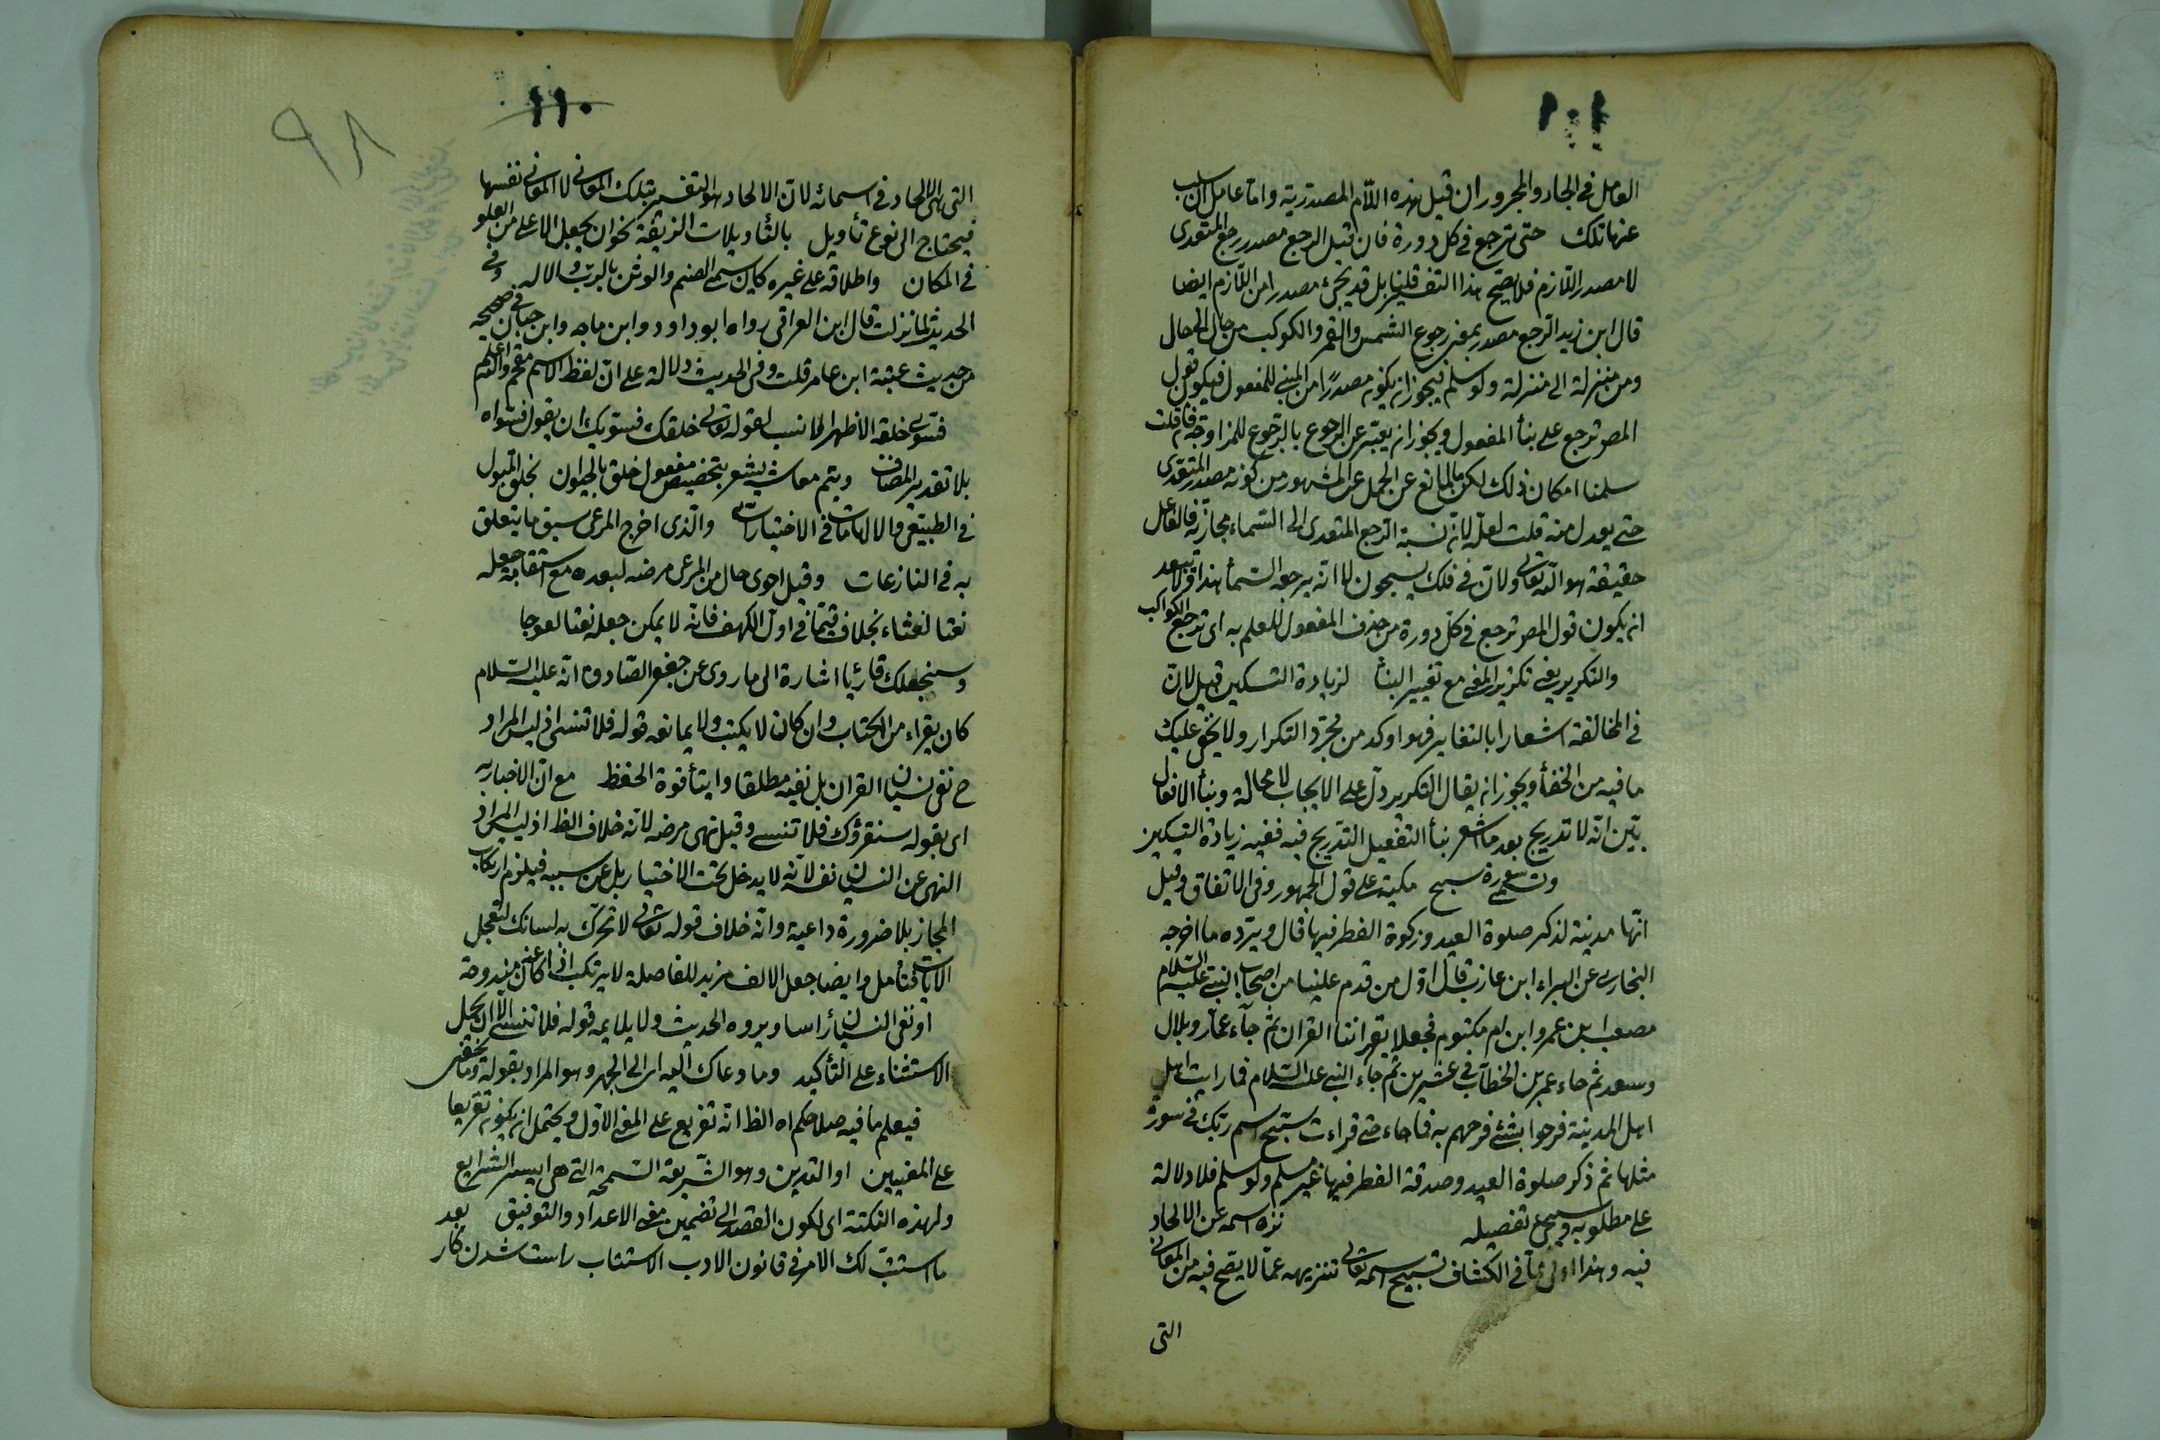 ١٠١
العامل فى الجار والمجرور ان قيل بهذه اللام المصدرية واما عامل ان
عنها تلك حتى ترجع فى كل دورة فان قيل الرجع مصدر رجع المتعدى
لا مصدر اللازم فلا يصح هذا التفسير قلنا بل قد يجئ مصدرا من اللازم ايضا
قال ابن زيد الرجع مصدر بمعنى رجوع الشمس والقمر والكوكب من حال الى حال
ومن منزلة الى منزلة ولو سلم فيجوز ان يكون مصدرا من المبنى للمفعول فيكون قول
المصر ترجع على بناء المفعول ويجوز ان يعبر عن الرجوع بالرجوع للمزاوجة فان قلت
سلمنا امكان ذلك لكن ما المانع عن الحمل عن المشهور من كونه مصدر المتعدى
حتى يعدل منه قلت لعله لان نسبة الرجع المتعدى الى السماء مجازية فالفاعل
حقيقة هو الله تعالى ولان فى فلك يسبحون لا انه يرجعه السماء هذا قد لا يبعد
ان يكون قول المصر ترجع فى كل دورة من حذف المفعول للعلم به اى ترجع الكواكب
والتكرير يعنى تكرير المعنى مع تغيير البناء لزيادة التسكين قيل لان
فى المخالفة اشعارا بالتغاير فهو اوكد من مجرد التكرار ولا يخفى عليك
ما فيه من الخفأ ويجوز ان يقال التكرير دل على الايجاب لا محالة وبناء الافعال
بين انه لا تدريج بعد ما اشعر بنأ التفعيل التدريج فيه ففيه زيادة التسكين
سورة سبح مكية على قول الجمهور وفى الاتفاق وقيل
انها مدنية لذكر صلوة العيد وزكوة الفطر فيها قال ويرده ما اخرجه
البخارى عن البراء ابن عازب قال اول من قدم علينا من اصحاب النبى عليه السلام
مصعب ابن عمر وابن ام مكتوم فجعلا يقراننا القران ثم جاء عمار وبلال
وسعد ثم جاء عمر بن الخطاب فى عشرين ثم جاء النبى عليه السلام فما رايت اهل
اهل المدينة فرحوا بشئ فرحهم به فما جاء حتى قراءت سبح اسم ربك فى سور
مثلها ثم ذكر صلوة العيد وصدقة الفطر فيها غير مسلم ولو سلم فلا دلالة
على مطلوبه وسيجئ تفصيله نزه اسمه عن الالحاد
فيه وهذا اولى مما فى الكشاف تسبيح اسمه تعالى تنزيهه عما لا يصح فيه من المعانى
التى
١١٠
٩٨
التى هى الالحاد فى اسمائه لان الالحاد هو التفسير بتلك المعانى لا المعانى نفسها
فيحتاج الى نوع تأويل بالتأويلات الزيغة نحو ان يجعل الاعلى من العلو
فى المكان واطلاقه على غيره كان يسمى الصنم والوثن بالرب والاله وفى
الحديث لما نزلت قال ابن العراقى رواه ابو داود وابن ماجه وابن حبان فى صحيحه
من حديث عتبة ابن عامر قلت وفى الحديث دلالة على ان لفظ الاسم مقحم والله اعلم
فسوى خلقه الاظهر المناسب لقوله تعالى خلقك فسويك ان يقول فسواه
بلا تقدير المضاف ويتم معاشه يشعر بتخصيص مفعول خلق بالحيوان بخلق الميول
فى الطبيعى والالهامات فى الاختيارات والذى اخرج المرعى سبق ما يتعلق
به فى النازعات وقيل احوى حال من المرعى مرضه لبعده مع استقامة جعله
نعتا لغثاء بخلاف قيما فى اول الكهف فانه لا يمكن جعله نعتا لعوجا
وسنجعلك قارئا اشارة الى ما روى عن جعفر الصادق انه عليه السلام
كان يقراء من الكتاب وان كان لا يكتب ولا يمانعه قوله فلا تنسى اذ ليس المراد
ح نفى نسيان القران بل نفيه مطلقا وايتأ قوة الحفظ مع ان الاخبار به
اى بقوله سنقرؤك فلا تنسى وقيل نهى مرضه لانه خلاف الظ اذ ليس المراد
النهى عن النسيان نفسه لانه لا يدخل تحت الاختيار بل عن سببه فيلزم ارتكاب
المجاز بلا ضرورة داعية وانه خلاف قوله تعالى لا تحرك به لسانك لتعجل
الايات فتأمل وايضا جعل الالف مزيد للفاصلة لا يرتكب اذا كان عنه مندوحة
او نفى النسيان رأسا ويروه الحديث ولا يلايمه قوله فلا تنسى الا ان يحمل
الاستثناء على التأكيد وما دعاك اليه اى الى الجهر وهو المراد بقوله وما يخفى
فيعلم ما فيه صلاحكم اه الظ انه تفريع على المعنى الاول ويحتمل ان يكون تفريعا
على المعنيين او التدين وهو الشريعة السمحة التى هى ايسر الشرايع
ولهذه النكتة اى لكون القصد الى تضمين معنى الاعداد والتوفيق بعد
ما استتب لك الامر فى قانون الادب الاستتاب راست شدن كار